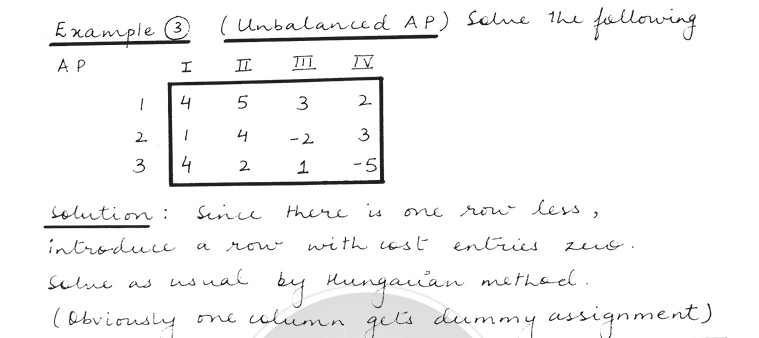 Example ③ (Unbalanced AP) Solve the following
AP I II III IV
1 4 5 3 2
2 1 4 -2 3
3 4 2 1 -5
Solution : Since there is one row less,
introduce a row with cost entries zero.
Solve as usual by Hungarian method.
(Obviously one column gets dummy assignment)